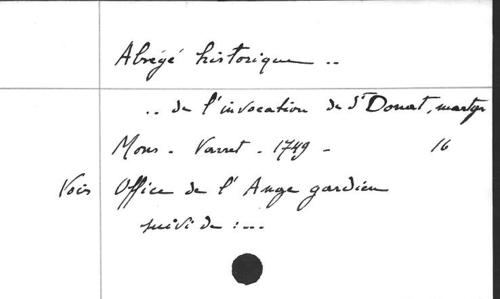 Abrégé historique ..
.. de l'invocation de St Donat, martyr
Mons - Varret - 1749 - 16
Voir Office de l'Ange gardien
suivi de : ...